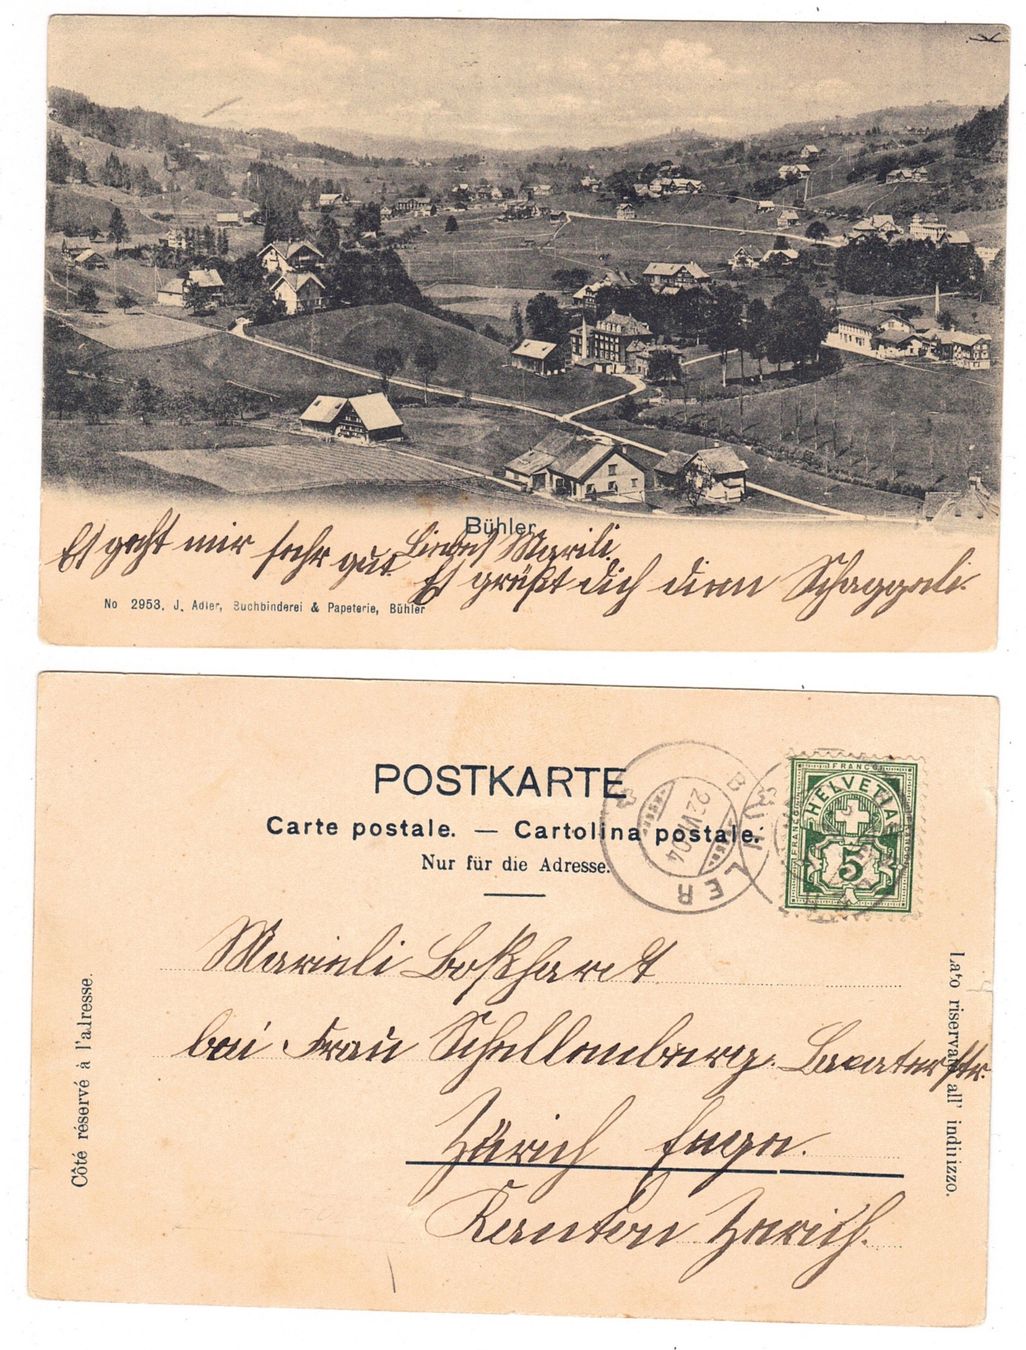 Bühler
Liebes Marili.
Es geht mir sehr gut. Es grüßt dich dein Schaggeli.
No 2953. J. Adler, Buchbinderei & Papeterie, Bühler
POSTKARTE
Carte postale. — Cartolina postale.
Nur für die Adresse.
BÜHLER
22.VI.04
FRANCO
HELVETIA
FRANCO
5
Côté réservé à l'adresse.
Lato riservato all' indirizzo.
Marieli Boßhardt
bei Frau Schellenberg. Lavaterstr.
Zürich Enge.
Kanton Zürich.